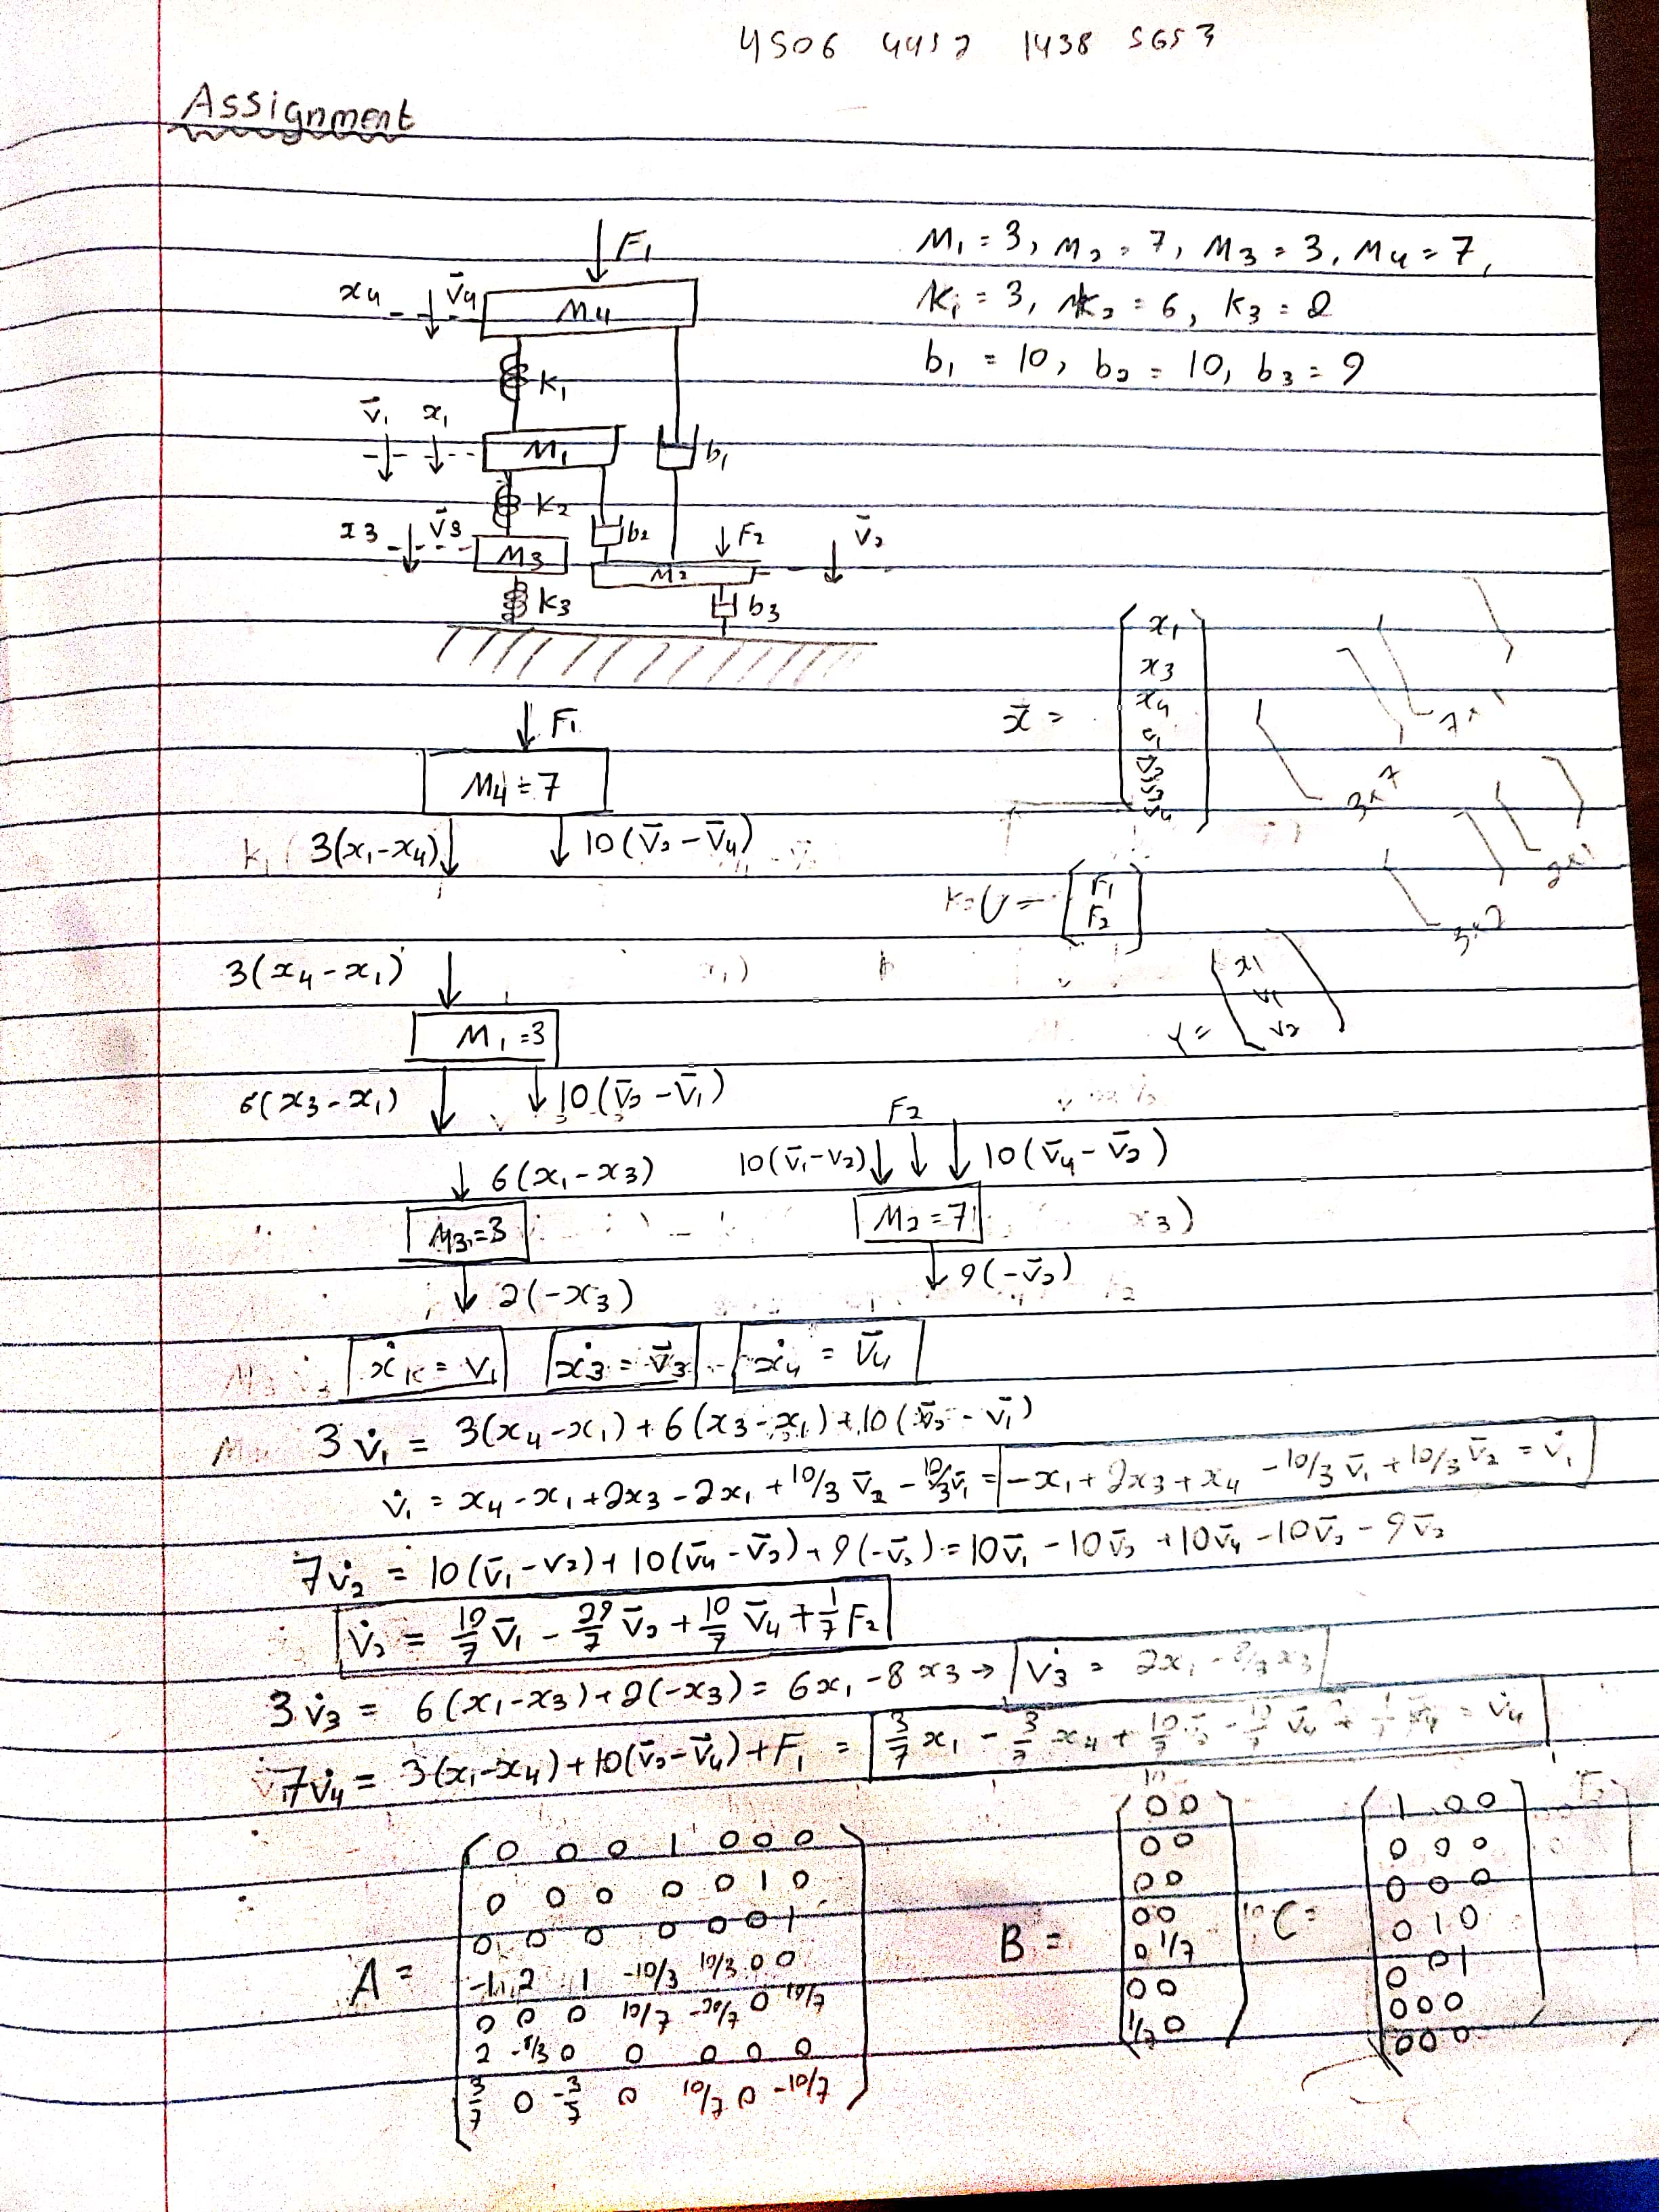 4506 4452 1438 5653
Assignment
F1
M1 = 3, M2 = 7, M3 = 3, M4 = 7,
x4 v̄4 M4
K1 = 3, K2 = 6, K3 = 2
K1
b1 = 10, b2 = 10, b3 = 9
v̄1 x1 M1 b1
K2
x3 v̄3 M3 b2 F2 v̄2
M2
K3 b3
x̄ = [x1 x3 x4 v1 v̄2 v̄3 v4]
7×1
3×7
F1
M4 = 7
K1 3(x1-x4) 10(v̄2-v̄4)
2×1
U = [F1 F2]
3×2
3(x4-x1)
Y = [x1 v1 v2]
M1 = 3
6(x3-x1) 10(v̄2-v̄1)
F2
6(x1-x3) 10(v̄1-v2) 10(v̄4-v̄2)
M3 = 3 M2 = 7
2(-x3) 9(-v̄2)
ẋ1 = v1 ẋ3 = v̄3 ẋ4 = v̄4
3v̇1 = 3(x4-x1) + 6(x3-x1) + 10(v̄2 - v̄1)
v̇1 = x4 - x1 + 2x3 - 2x1 + 10/3 v̄2 - 10/3 v̄1 = -x1 + 2x3 + x4 - 10/3 v̄1 + 10/3 v̄2 = v̇1
7v̇2 = 10(v̄1-v2) + 10(v̄4-v̄2) + 9(-v̄2) = 10v̄1 - 10v̄2 + 10v̄4 - 10v̄2 - 9v̄2
v̇2 = 10/7 v̄1 - 29/7 v̄2 + 10/7 v̄4 + 1/7 F2
3v̇3 = 6(x1-x3) + 2(-x3) = 6x1 - 8x3 → v̇3 = 2x1 - 8/3 x3
7v̇4 = 3(x1-x4) + 10(v̄2-v̄4) + F1 = 3/7 x1 - 3/7 x4 + 10/7 v̄2 - 10/7 v̄4 + = v̇4
A =
0 0 0 1 0 0 0
0 0 0 0 0 1 0
0 0 0 0 0 0 1
-1 2 1 -10/3 10/3 0 0
0 0 0 10/7 0 10/7
2 -8/3 0 0 0 0 0
3/7 0 -3/7 0 10/7 0 -10/7
B =
0 0
0 0
0 0
0 0
0 1/7
0 0
1/7 0
C =
1 0 0
0 0 0
0 0 0
0 1 0
0 0 1
0 0 0
0 0 0